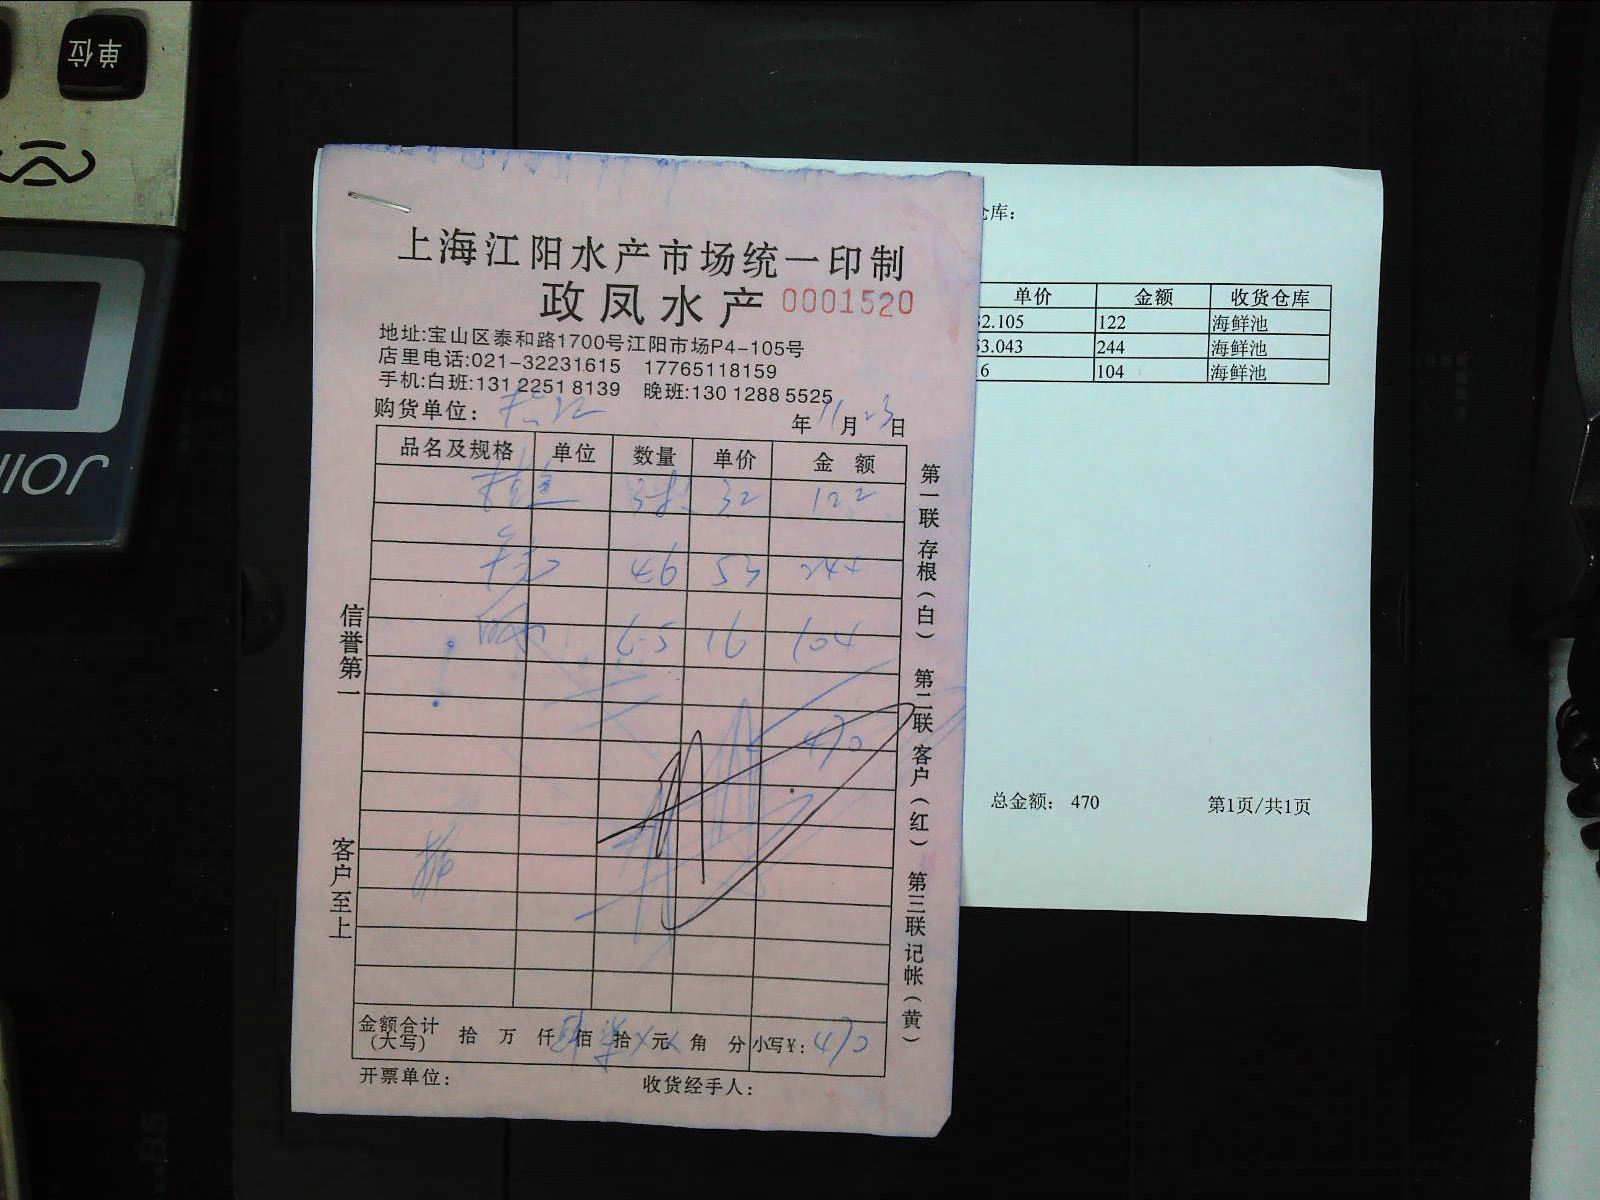 单位
上海江阳水产市场统一印制
政凤水产 0001520
地址:宝山区泰和路1700号江阳市场P4-105号
店里电话:021-32231615 17765118159
手机:白班:131 2251 8139 晚班:130 1288 5525
购货单位: 年11月23日
品名及规格 单位 数量 单价 金额
桂鱼 32 122
46 53 244
6.5 16 104
470
金额合计(大写) 拾 万 仟 肆佰 柒拾 元 角 分 小写¥: 470
开票单位: 收货经手人:
信誉第一
客户至上
第一联存根(白)
第二联客户(红)
第三联记帐(黄)
仓库:
单价 金额 收货仓库
2.105 122 海鲜池
3.043 244 海鲜池
6 104 海鲜池
总金额: 470 第1页/共1页